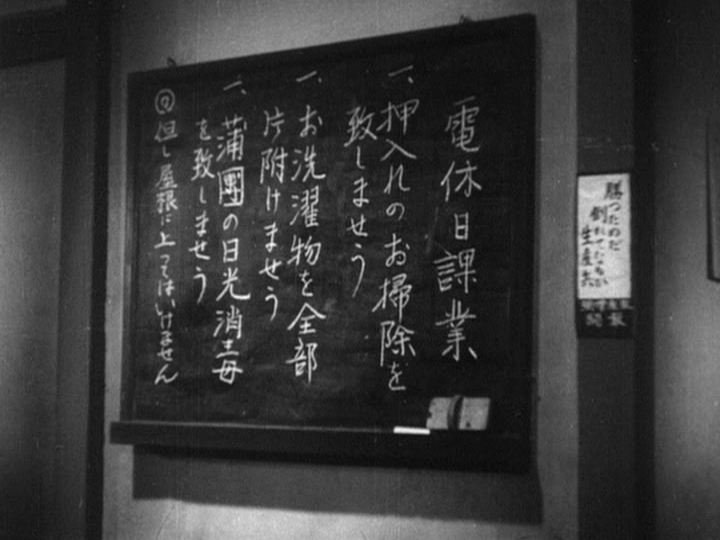 電休日課業
一、押入れのお掃除を
致しませう
一、お洗濯物を全部
片附けませう
一、蒲團の日光消毒
を致しませう
◎但し屋根に上ってはいけません
勝つためだ